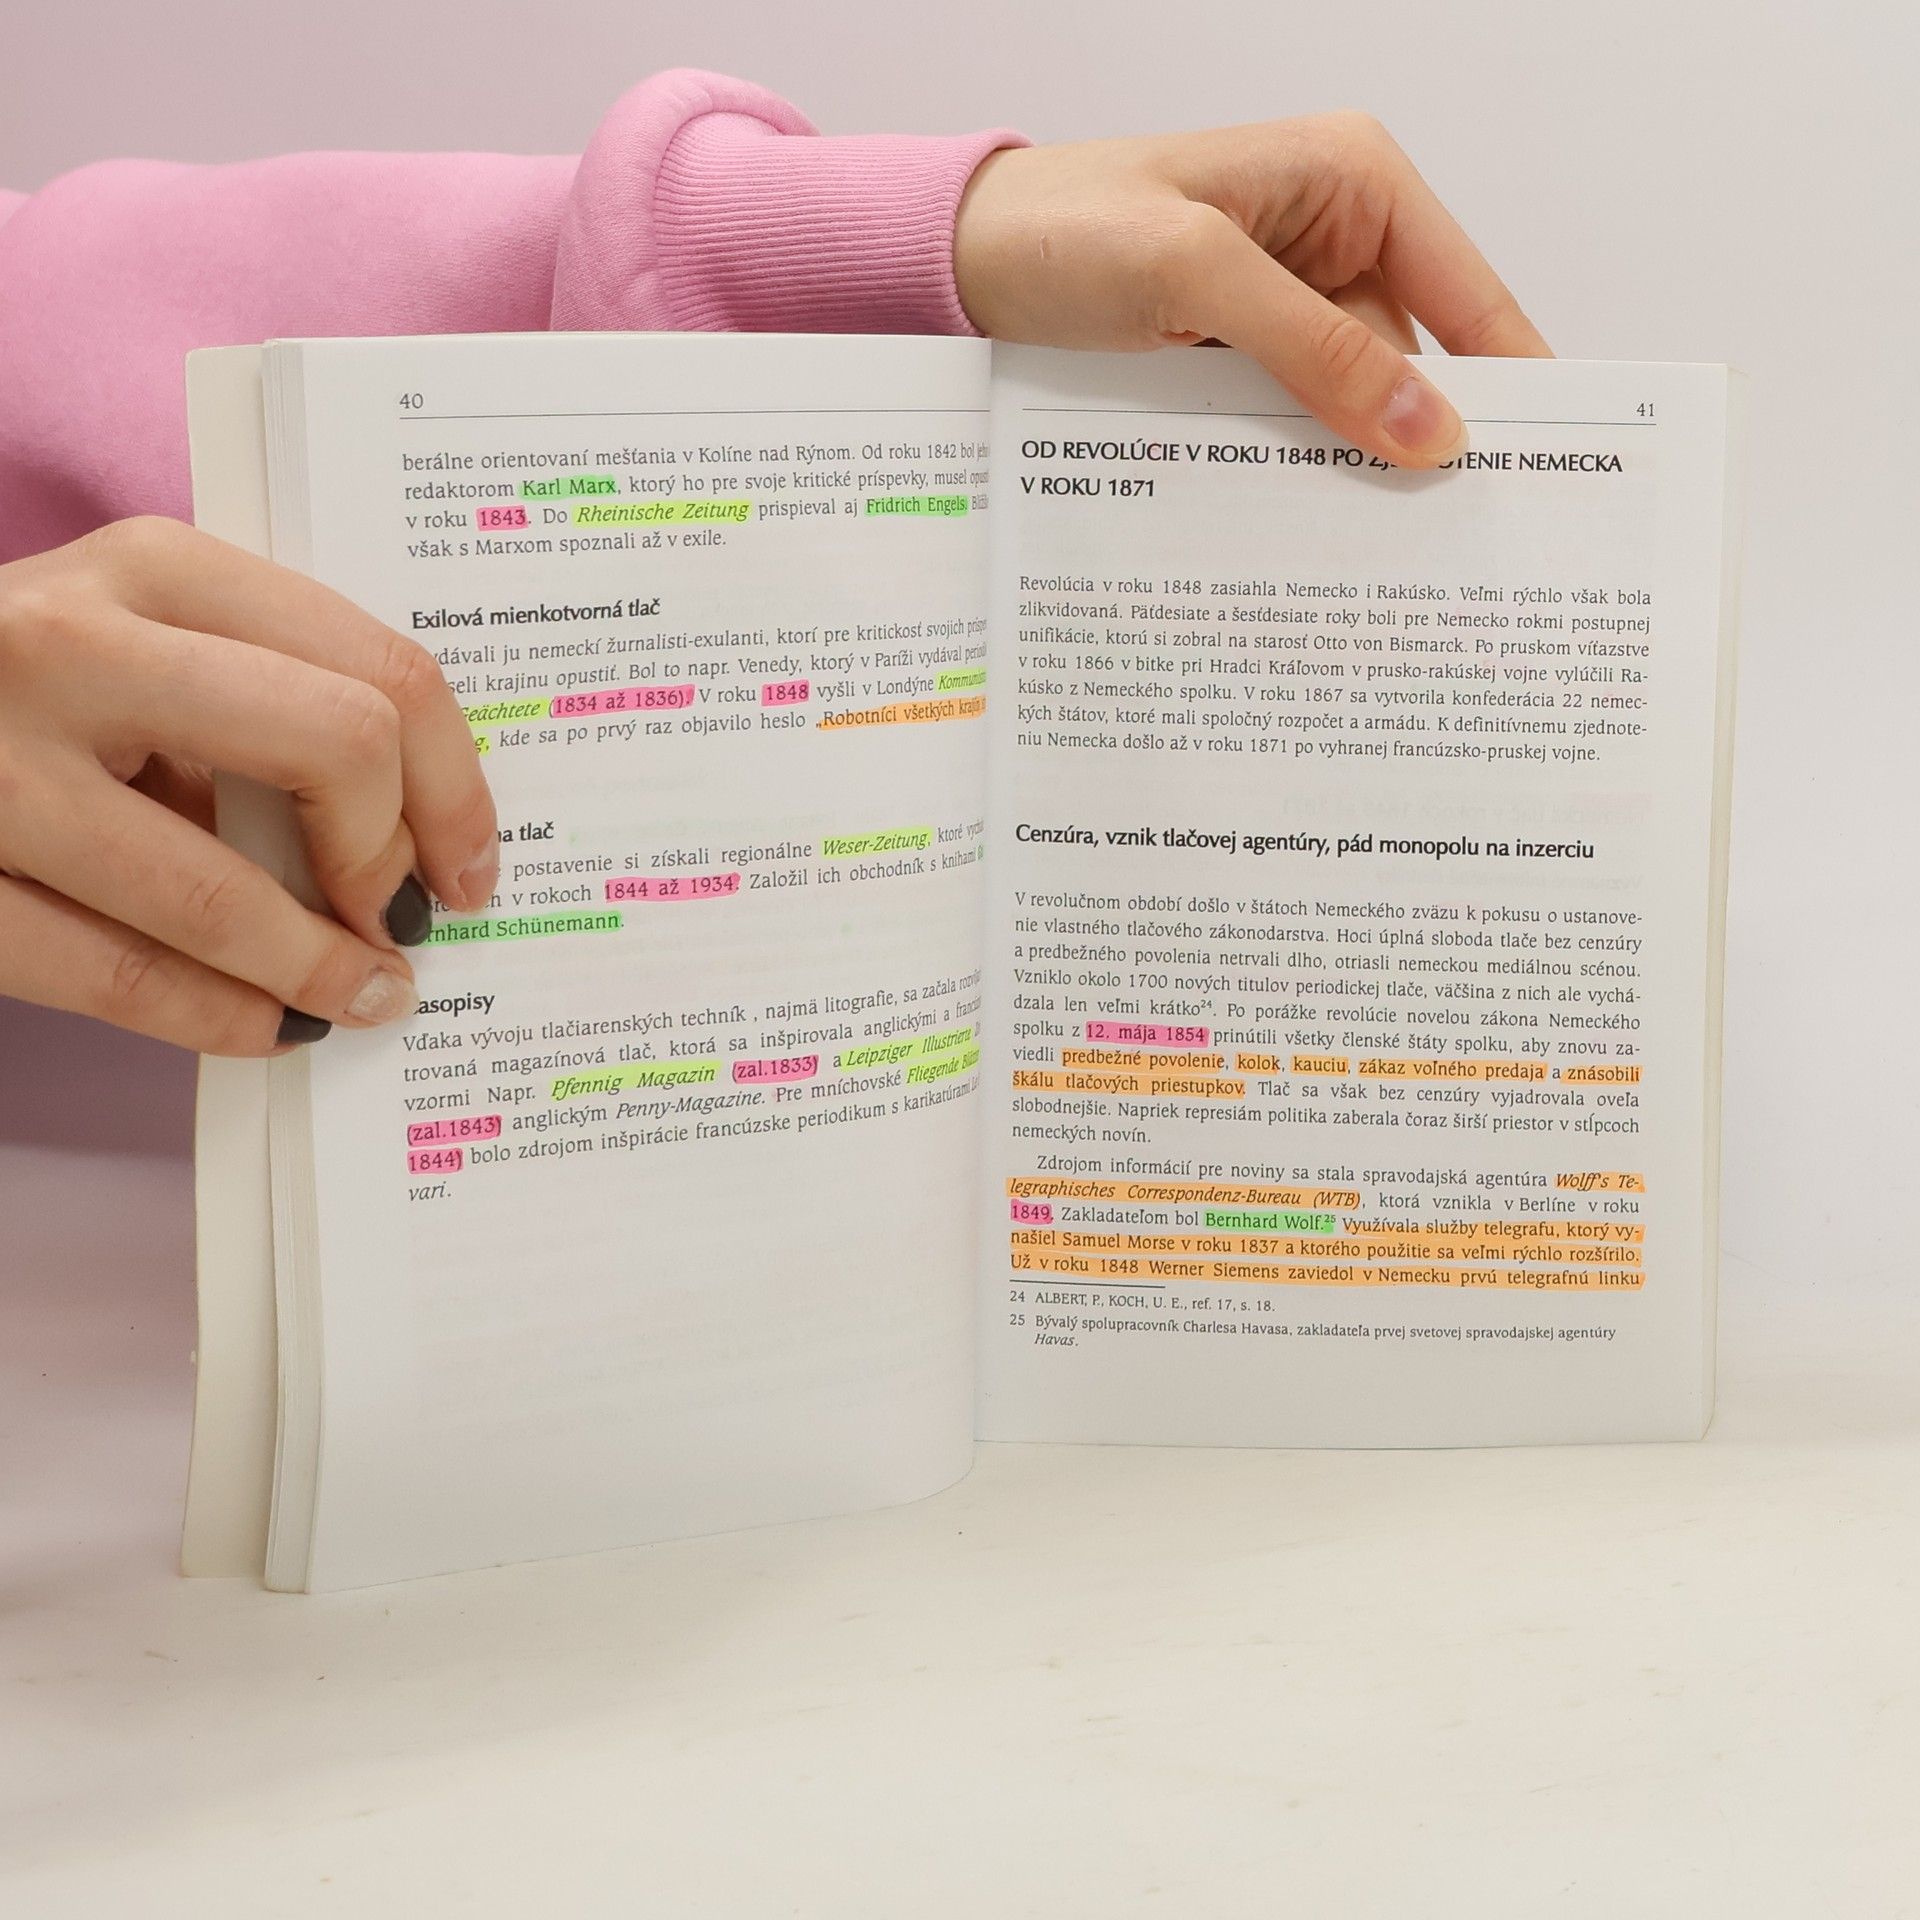 40
berálne orientovaní mešťania v Kolíne nad Rýnom. Od roku 1842 bol
redaktorom Karl Marx, ktorý ho pre svoje kritické príspevky, musel
v roku 1843. Do Rheinische Zeitung prispieval aj Fridrich Engels.
však s Marxom spoznali až v exile.
Exilová mienkotvorná tlač
ju nemeckí žurnalisti-exulanti, ktorí pre kritickosť svojich
krajinu opustiť. Bol to napr. Venedy, ktorý v Paríži vydával
(1834 až 1836). V roku 1848 vyšli v Londýne
kde sa po prvý raz objavilo heslo „Robotníci všetkých krajín
tlač
postavenie si získali regionálne Weser-Zeitung, ktoré
v rokoch 1844 až 1934. Založil ich obchodník s knihami
Schünemann.
Vďaka vývoju tlačiarenských techník , najmä litografie, sa začala
trovaná magazínová tlač, ktorá sa inšpirovala anglickými a
vzormi Napr. Pfennig Magazin (zal.1833) a Leipziger Illustrierte
(zal.1843) anglickým Penny-Magazine. Pre mníchovské Fliegende
1844) bolo zdrojom inšpirácie francúzske periodikum s karikatúrami
vari.
41
OD REVOLÚCIE V ROKU 1848 PO NEMECKA
V ROKU 1871
Revolúcia v roku 1848 zasiahla Nemecko i Rakúsko. Veľmi rýchlo však bola
zlikvidovaná. Päťdesiate a šesťdesiate roky boli pre Nemecko rokmi postupnej
unifikácie, ktorú si zobral na starosť Otto von Bismarck. Po pruskom víťazstve
v roku 1866 v bitke pri Hradci Kráľovom v prusko-rakúskej vojne vylúčili Ra-
kúsko z Nemeckého spolku. V roku 1867 sa vytvorila konfederácia 22 nemec-
kých štátov, ktoré mali spoločný rozpočet a armádu. K definitívnemu zjednote-
niu Nemecka došlo až v roku 1871 po vyhranej francúzsko-pruskej vojne.
Cenzúra, vznik tlačovej agentúry, pád monopolu na inzerciu
V revolučnom období došlo v štátoch Nemeckého zväzu k pokusu o ustanove-
nie vlastného tlačového zákonodarstva. Hoci úplná sloboda tlače bez cenzúry
a predbežného povolenia netrvali dlho, otriasli nemeckou mediálnou scénou.
Vzniklo okolo 1700 nových titulov periodickej tlače, väčšina z nich ale vychá-
dzala len veľmi krátko²⁴. Po porážke revolúcie novelou zákona Nemeckého
spolku z 12. mája 1854 prinútili všetky členské štáty spolku, aby znovu za-
viedli predbežné povolenie, kolok, kauciu, zákaz voľného predaja a znásobili
škálu tlačových priestupkov. Tlač sa však bez cenzúry vyjadrovala oveľa
slobodnejšie. Napriek represiám politika zaberala čoraz širší priestor v stĺpcoch
nemeckých novín.
Zdrojom informácií pre noviny sa stala spravodajská agentúra Wolff's Te-
legraphisches Correspondenz-Bureau (WTB), ktorá vznikla v Berlíne v roku
1849. Zakladateľom bol Bernhard Wolf.²⁵ Využívala služby telegrafu, ktorý vy-
našiel Samuel Morse v roku 1837 a ktorého použitie sa veľmi rýchlo rozšírilo.
Už v roku 1848 Werner Siemens zaviedol v Nemecku prvú telegrafnú linku
24 ALBERT, P., KOCH, U. E., ref. 17, s. 18.
25 Bývalý spolupracovník Charlesa Havasa, zakladateľa prvej svetovej spravodajskej agentúry
Havas.